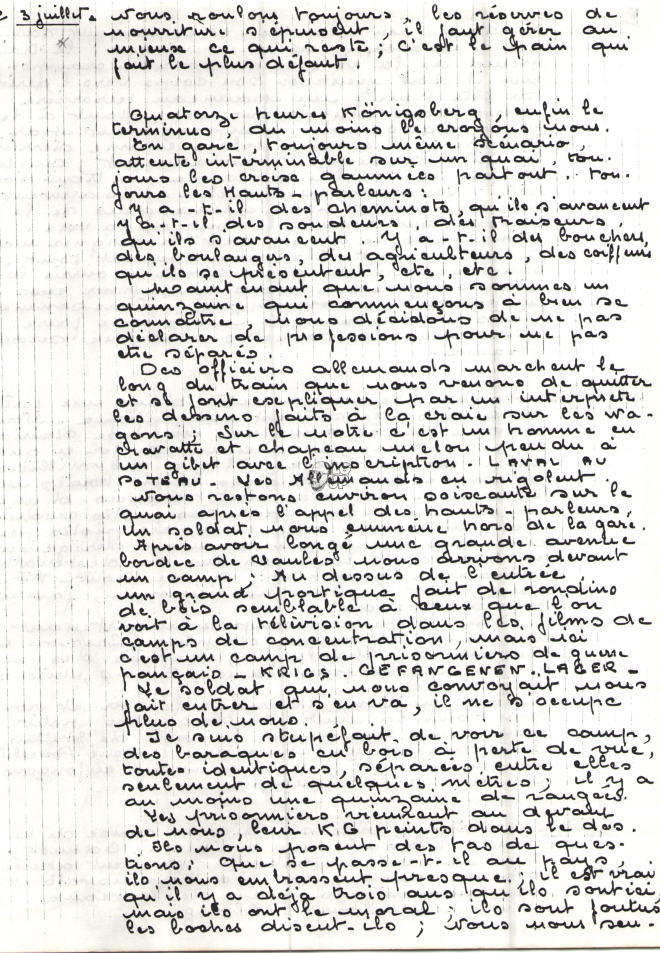 3 juillet. Nous roulons toujours, les réserves de
nourriture s'épuisent, il faut gérer au
mieux ce qui reste ; c'est le pain qui
fait le plus défaut.
Quatorze heures Königsberg, enfin le
terminus, du moins le croyons nous.
En gare, toujours même scénario,
attente interminable sur un quai, tou-
jours les croix gammées partout. tou-
jours les Hauts-parleurs :
Y a-t-il des cheminots, qu'ils s'avancent
y a-t-il des soudeurs, des fraiseurs,
qu'ils s'avancent. Y a-t-il des bouchers,
des boulangers, des agriculteurs, des coiffeurs
qu'ils se présentent, etc, etc.
Maintenant que nous sommes un
quinzaine qui commençons à bien se
connaître, nous décidons de ne pas
déclarer de professions pour ne pas
être séparés.
Des officiers allemands marchent le
long du train que nous venons de quitter
et se font expliquer par un interprète
les dessins faits à la craie sur les wa-
gons ; Sur le notre c'est un homme en
cravatte et chapeau melon pendu à
un gibet avec l'inscription. LAVAL AU
POTEAU. Les Allemands en rigolent.
Nous restons environ soixante sur le
quai après l'appel des hauts-parleurs,
un soldat nous emmène hors de la gare.
Après avoir longé une grande avenue
bordée de saules nous arrivons devant
un camp ; Au dessus de l'entrée,
un grand portique fait de rondins
de bois semblable à ceux que l'on
voit à la télévision dans les films de
camps de concentration, mais ici
c'est un camp de prisonniers de guerre
français - KRIGS. GEFANGENEN. LAGER -
Le soldat qui nous convoyait nous
fait entrer et s'en va, il ne s'occupe
plus de nous.
Je suis stupéfait de voir ce camp,
des baraques en bois à perte de vue,
toutes identiques, séparées entre elles
seulement de quelques mètres ; il y a
au moins une quinzaine de rangées.
Les prisonniers viennent au devant
de nous, leur KG peints dans le dos.
Ils nous posent des tas de ques-
tions ; Que se passe-t-il au pays,
ils nous embrassent presque ; il est vrai
qu'il y a déjà trois ans qu'ils sont ici,
mais ils ont le moral ; ils sont foutus
les boches disent-ils ; Vous nous sen-